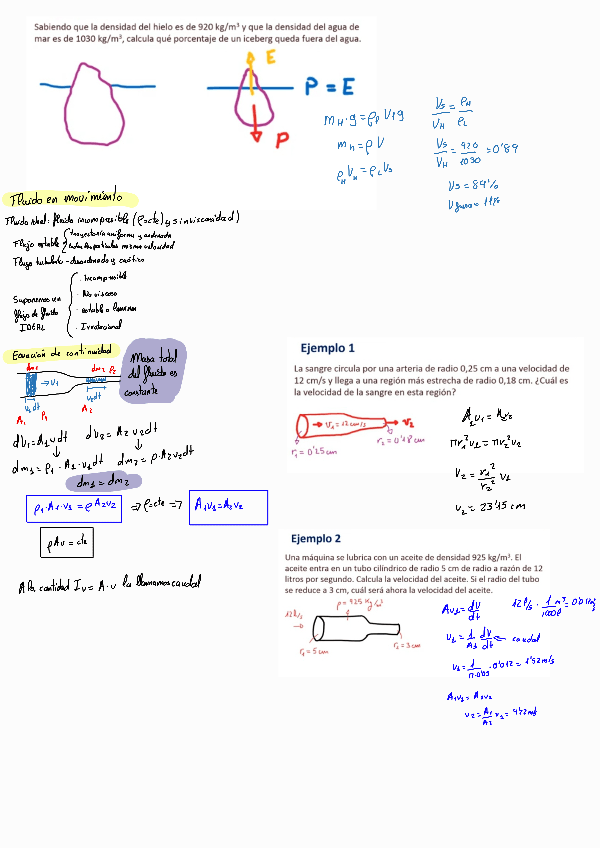 Sabiendo que la densidad del hielo es de 920 kg/m³ y que la densidad del agua de
mar es de 1030 kg/m³, calcula qué porcentaje de un iceberg queda fuera del agua.
E
P = E
P
m_H·g = ρ_L V_1 g
m_H = ρ V
ρ_H V_H = ρ_L V_s
V_s/V_H = ρ_H/ρ_L
V_s/V_H = 920/1030 = 0'89
V_s = 89%
V_fuera = 11%
Fluido en movimiento
Fluido ideal: fluido incompresible (ρ=cte) y sin viscosidad)
Flujo estable { trayectoria uniforme y ordenada
todas las partículas misma velocidad
Flujo turbulento - desordenado y caótico
Suponemos un
flujo de fluido
IDEAL
- Incompresible
- No viscoso
- estable o laminar
- Irrotacional
Ecuación de continuidad
Masa total
del fluido es
constante
dm₁
dm₂ ρ₂
→ v₁
v₁dt
v₂dt
A₁ ρ₁
A₂
dV₁ = A₁v₁dt dV₂ = A₂ v₂dt
dm₁ = ρ₁·A₁·v₁dt dm₂ = ρ·A₂v₂dt
dm₁ = dm₂
ρ₁·A₁·v₁ = ρA₂v₂ ⇒ ρ=cte ⇒ A₁v₁ = A₂v₂
ρAv = cte
A la cantidad I_v = A·v la llamamos caudal
Ejemplo 1
La sangre circula por una arteria de radio 0,25 cm a una velocidad de
12 cm/s y llega a una región más estrecha de radio 0,18 cm. ¿Cuál es
la velocidad de la sangre en esta región?
→ v₁ = 12 cm/s → v₂
r₁ = 0'25 cm
r₂ = 0'18 cm
A₁v₁ = A₂v₂
πr₁²v₁ = πr₂²v₂
v₂ = r₁²/r₂² v₁
v₂ = 23'15 cm
Ejemplo 2
Una máquina se lubrica con un aceite de densidad 925 kg/m³. El
aceite entra en un tubo cilíndrico de radio 5 cm de radio a razón de 12
litros por segundo. Calcula la velocidad del aceite. Si el radio del tubo
se reduce a 3 cm, cuál será ahora la velocidad del aceite.
12 l/s
ρ = 925 kg/m³
r₁ = 5 cm
r₂ = 3 cm
A₁v₁ = dV/dt
12 l/s · 1 m³/1000 l = 0'012 m³/s
v₁ = 1/A₁ dV/dt ← caudal
v₁ = 1/π·0'05² · 0'012 = 1'52 m/s
A₁v₁ = A₂v₂
v₂ = A₁/A₂ v₁ = 4'22 m/s